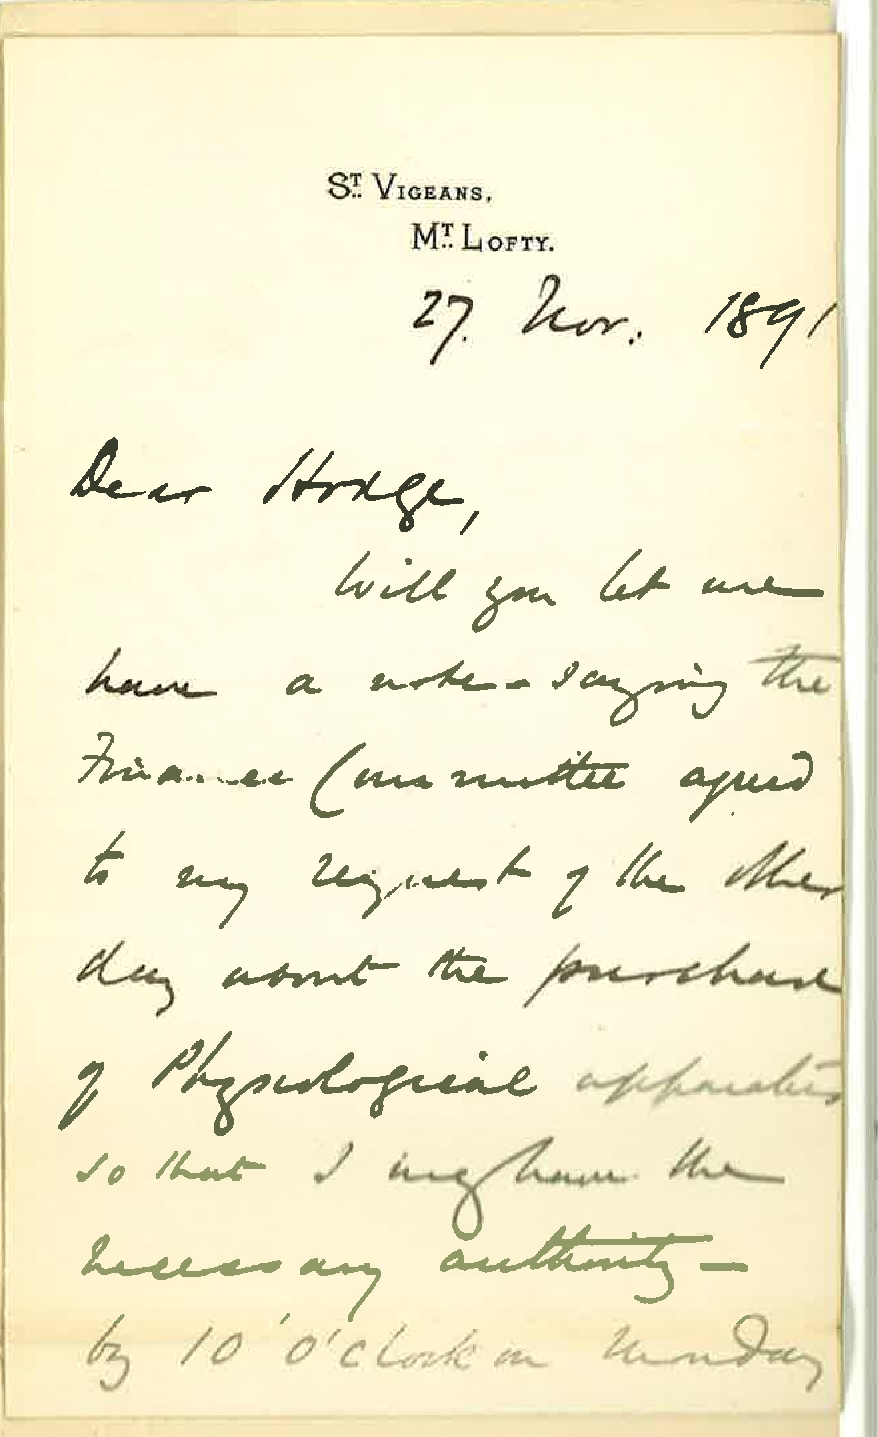 St. Vigeans,
Mt. Lofty.
27. Nov. 1891
Dear Hodge,
Will you let me
have a note - saying the
Finance Committee agreed
to my request of the other
day about the purchase
of Physiological apparatus
so that I may have the
necessary authority -
by 10 o'clock on Monday